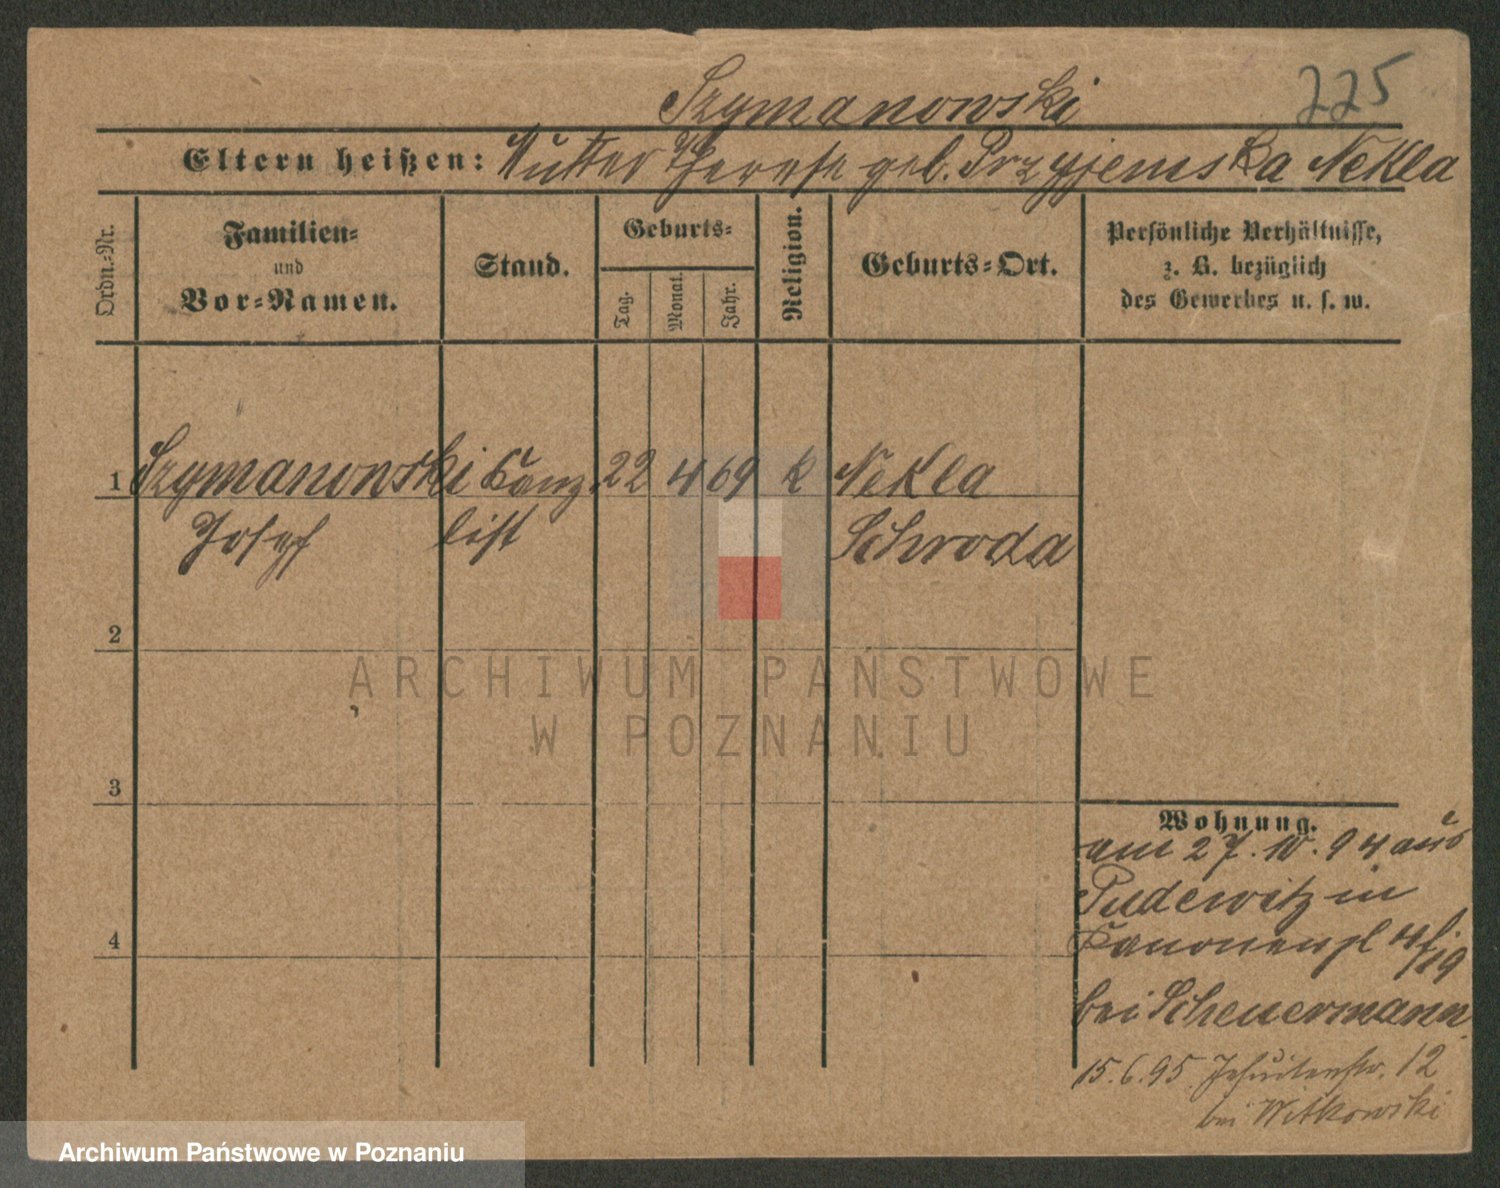 Szymanowski 225
Eltern heißen: Mutter Therese geb. Przyjemska Nekla
Ordn.-Nr.
Familien-
und
Vor-Namen.
Stand.
Geburts-
Tag.
Monat.
Jahr.
Religion.
Geburts-Ort.
Persönliche Verhältnisse,
z. B. bezüglich
des Gewerbes u. s. w.
1 Szymanowski Canz 22 4 69 k Nekla
Josef list Schroda
2
3
4
Wohnung.
am 27. 10. 94 aus
Pudewitz in
Canonenpl
bei Scheuermann
15.6.95. Jesuitenstr. 12
bei Witkowski
ARCHIWUM PAŃSTWOWE
W POZNANIU
Archiwum Państwowe w Poznaniu